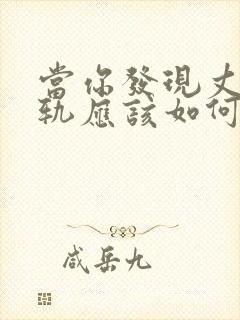 當你發現丈
軌應該如何
咸岳九